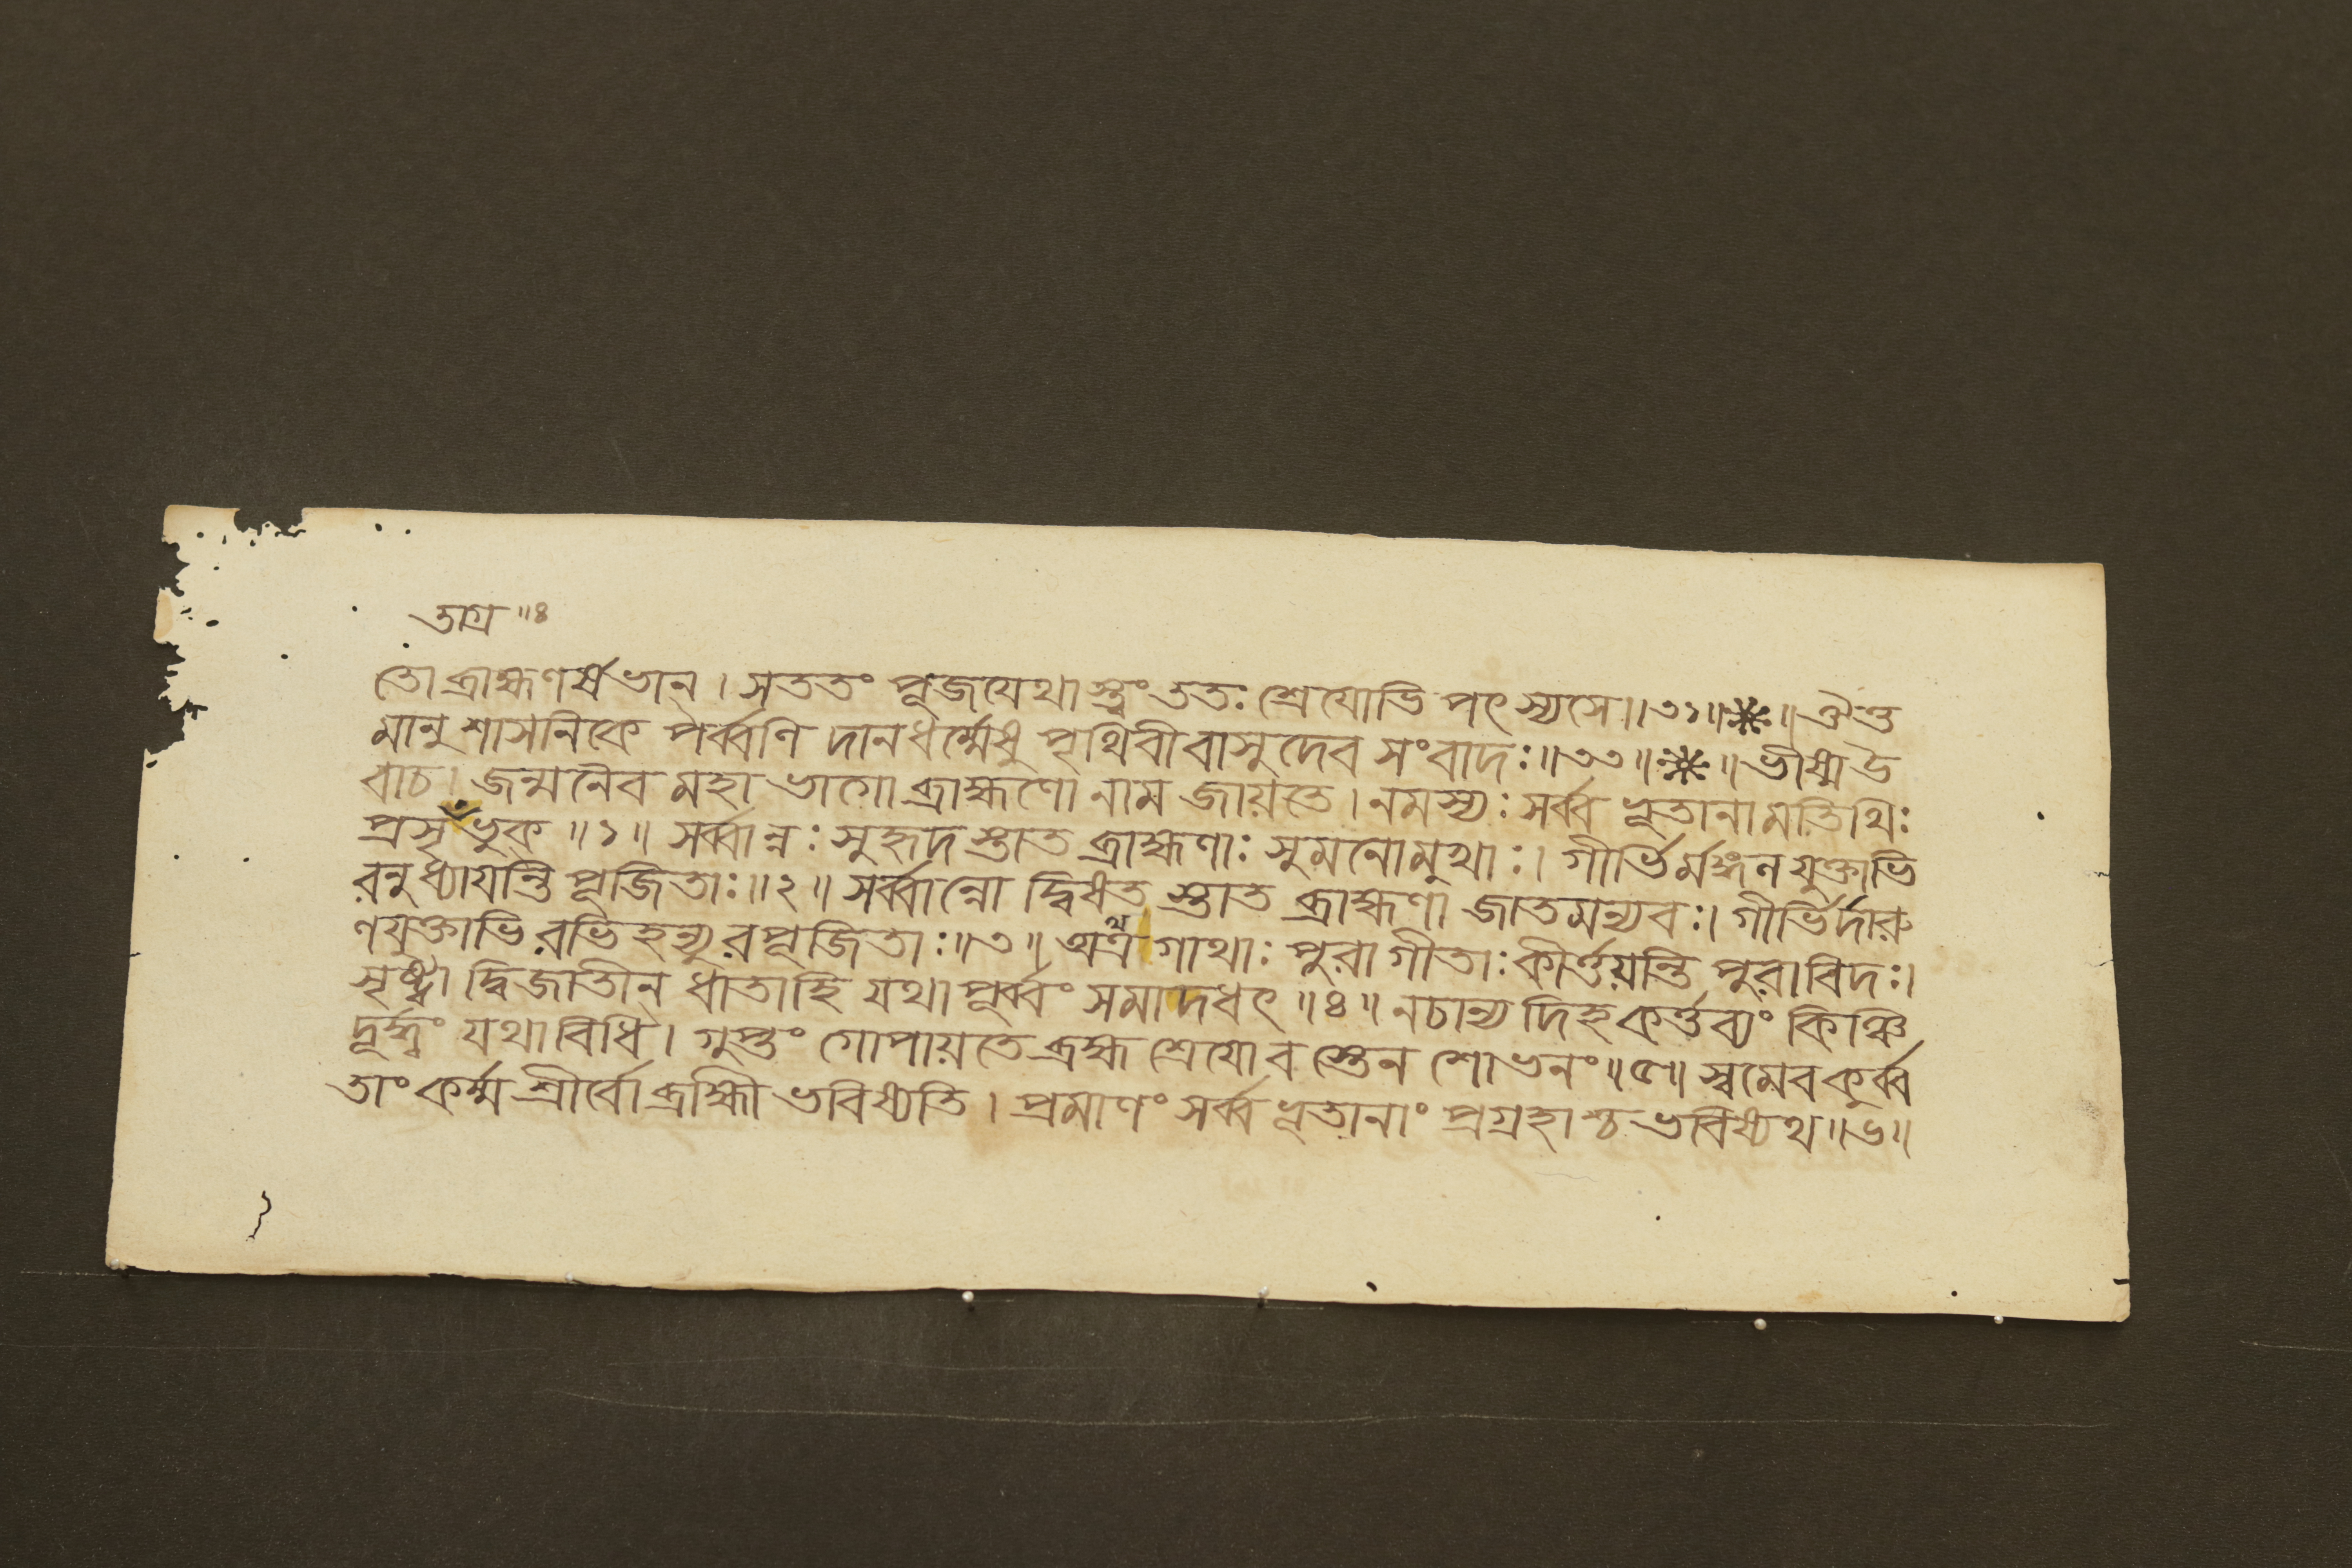 তাগ্র ॥৪
তো ব্রাহ্মণর্ষভান । সততং পূজযেথাস্ত্বং ততঃ শ্রেযোভি পৎস্যসে॥৩১॥❋॥ ঐত্ত
মানুশাসনিকে পর্ব্বণি দানধর্ম্মেষু পৃথিবীবাসুদেব সংবাদঃ॥৩৩॥❋॥ ভীষ্মউ
বাচ। জন্মনৈব মহাভাগো ব্রাহ্মণো নাম জায়তে। নমস্যঃ সর্ব্বভূতানামতিথিঃ
প্রসৃভুক ॥১॥ সর্ব্বান্নঃ সুহৃদস্তাত ব্রাহ্মণাঃ সুমনোমুখাঃ। গীর্ভির্মঙ্গনযুক্তাভি
রনুধ্যাযন্তি পূজিতাঃ॥২॥ সর্ব্বান্নো দ্বিষত স্তাত ব্রাহ্মণা জাতমন্যবঃ। গীর্ভির্দারু
ণযুক্তাভিরভিহন্যুরপূজিতাঃ॥৩॥ অত্র গাথাঃ পুরাগীতাঃ কীর্ত্তয়ন্তি পুরাবিদঃ।
সৃষ্ট্বা দ্বিজাতীন ধাতাহি যথাপূর্ব্বং সমাদধৎ॥৪॥ নচান্যদিহকর্ত্তব্যং কিঞ্চি
দূর্দ্ধ্বং যথাবিধি। গুপ্তং গোপায়তে ব্রহ্ম শ্রেযোব স্তেন শোভনং॥৫॥ স্বমেবকুর্ব্ব
তাং কর্ম্ম শ্রীর্বো ব্রহ্মী ভবিষ্যতি। প্রমাণং সর্ব্বভূতানাং প্রগ্রহাশ্চ ভবিষ্যথ॥৬॥